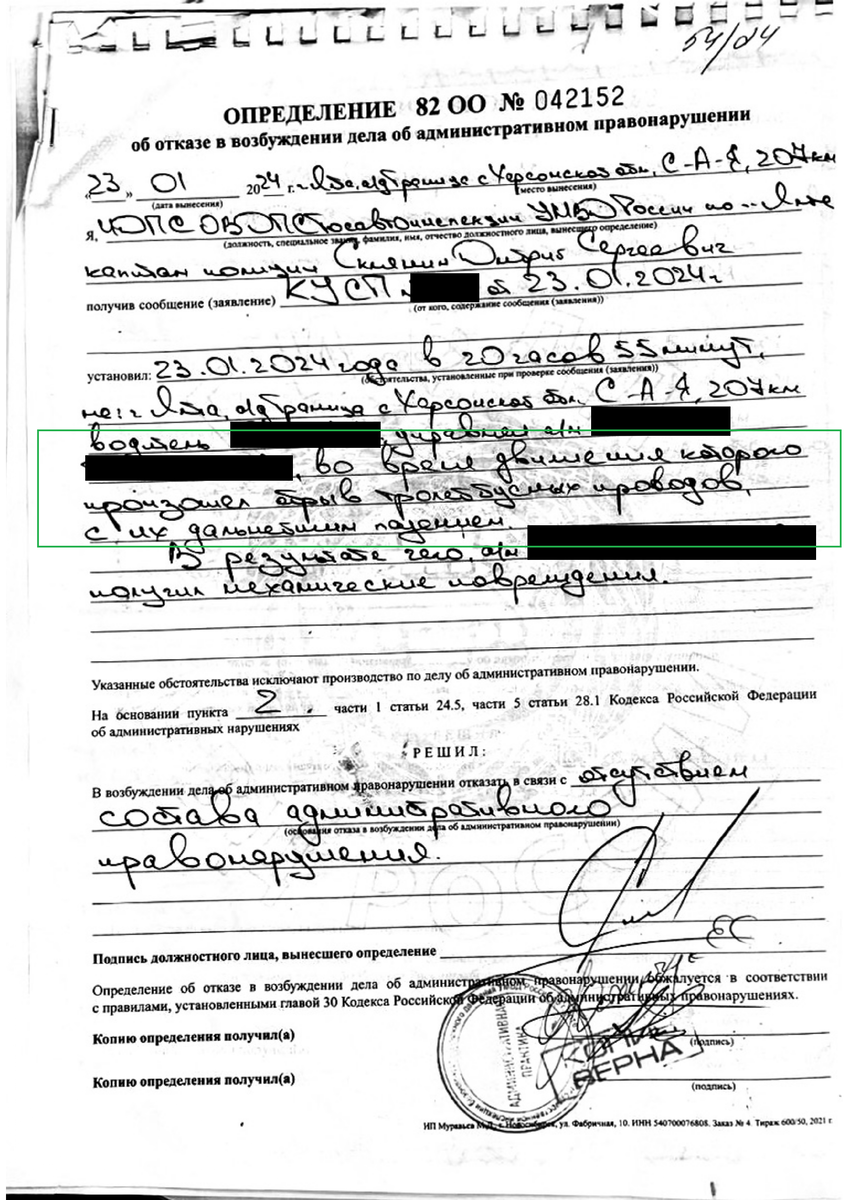 54/04
ОПРЕДЕЛЕНИЕ 82 ОО № 042152
об отказе в возбуждении дела об административном правонарушении
„23„ 01 2024 г. г. Ялта, а/д граница с Херсонской обл., С-А-Я, 207 км
(дата вынесения) (место вынесения)
я, ИДПС ОВ ДПС Госавтоинспекции УМВД России по г. Ялте
(должность, специальное звание, фамилия, имя, отчество должностного лица, вынесшего определение)
капитан полиции Склянин Дмитрий Сергеевич
получив сообщение (заявление) КУСП от 23.01.2024 г
(от кого, содержание сообщения (заявления))
установил: 23.01.2024 года в 20 часов 55 минут,
(обстоятельства, установленные при проверке сообщения (заявления))
на: г. Ялта, а/д граница с Херсонской обл. С-А-Я, 207 км
водитель , управлял а/м
, во время движения которого
произошел отрыв тролейбусных проводов,
с их дальнейшим падением.
В результате чего а/м
получил механические повреждения.
Указанные обстоятельства исключают производство по делу об административном правонарушении.
На основании пункта 2. части 1 статьи 24.5, части 5 статьи 28.1 Кодекса Российской Федерации
об административных нарушениях
РЕШИЛ:
В возбуждении дела об административном правонарушении отказать в связи с отсутствием
состава административного
(основания отказа в возбуждении дела об административном правонарушении)
правонарушения.
Подпись должностного лица, вынесшего определение
Определение об отказе в возбуждении дела об административном правонарушении обжалуется в соответствии
с правилами, установленными главой 30 Кодекса Российской Федерации об административных правонарушениях.
Копию определения получил(а)
(подпись)
АДМИНИСТРАТИВНАЯ ПРАКТИКА
КОПИЯ ВЕРНА
Копию определения получил(а)
(подпись)
ИП Муравьев М.Д., г. Новосибирск, ул. Фабричная, 10. ИНН 540700076808. Заказ № 4. Тираж 600/50, 2021 г.